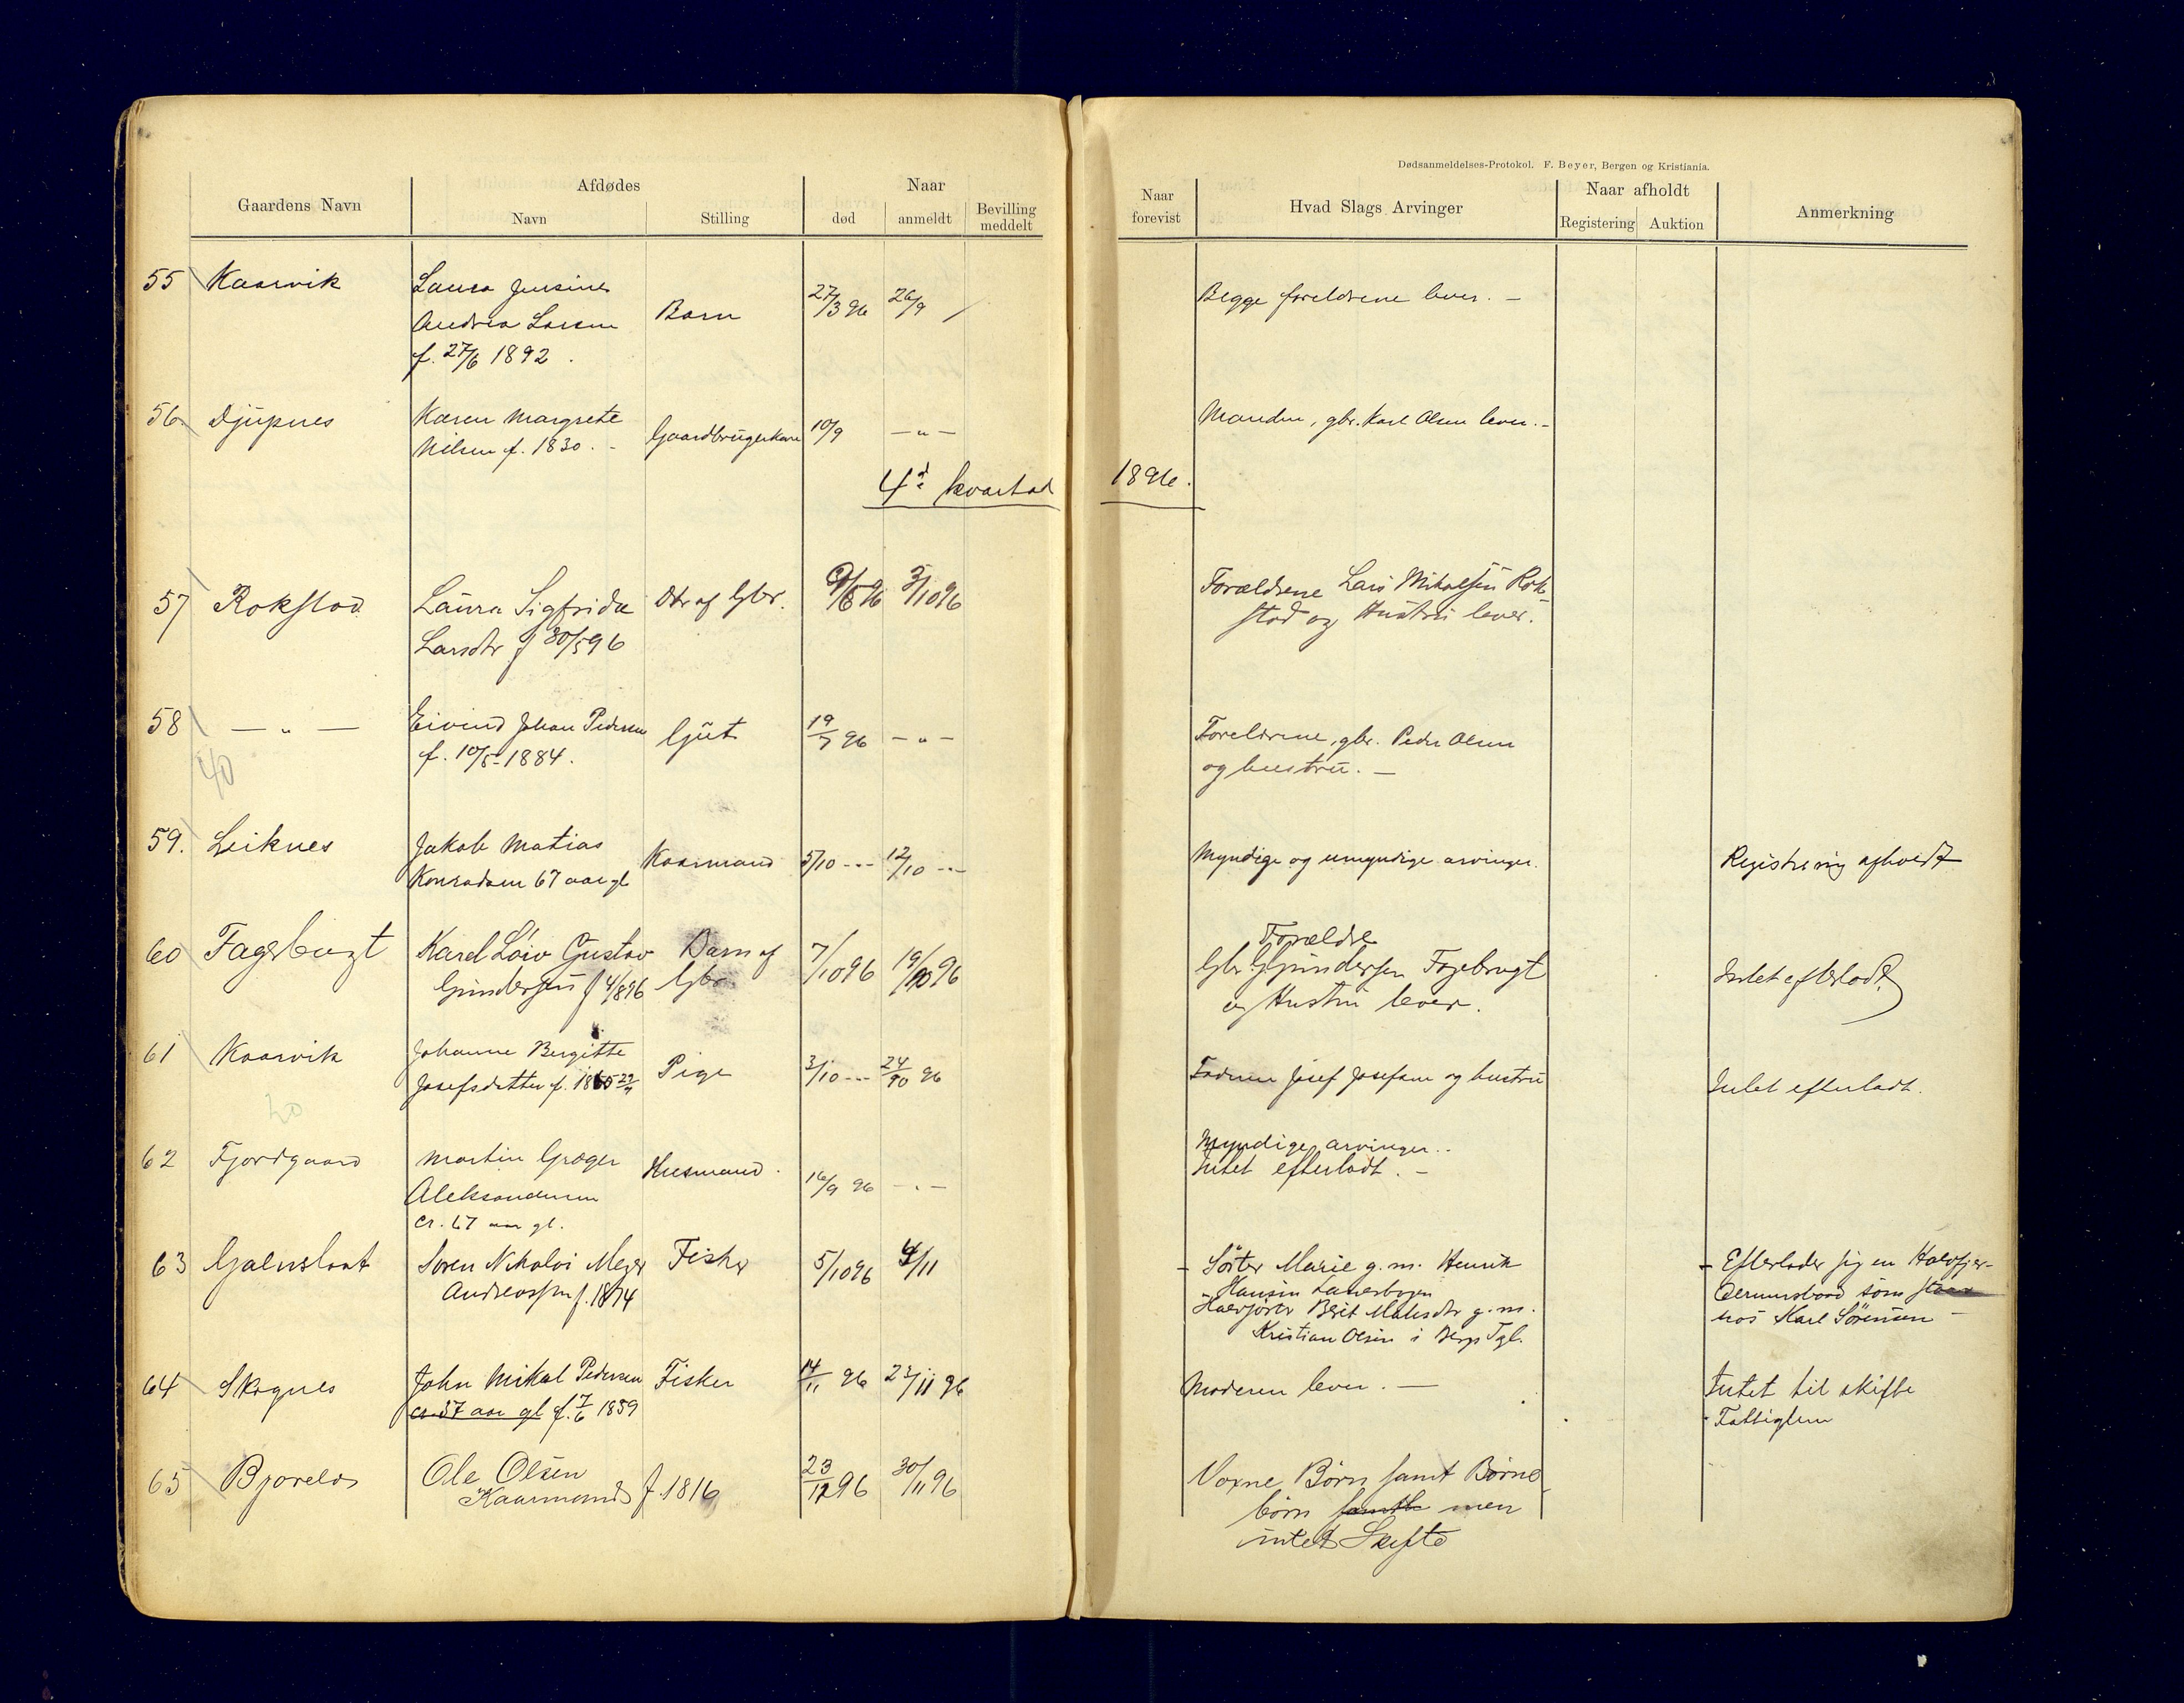 Dødsanmeldelses-Protokol. F. Beyer, Bergen og Kristiania.
Gaardens Navn
Afdødes
Navn
Stilling
Naar
død
anmeldt
Bevilling
meddelt
Naar
forevist
Hvad Slags Arvinger
Naar afholdt
Registering
Auktion
Anmerkning
55 Kaarvik
Laura Jensine
Andrea Larsen
f. 27/6 1892.
Barn
27/3 96
26/9
Begge foreldrene lever. –
56. Djupnes
Karen Margrete
Nilsen f. 1830. -
Gaardbrugerkone
10/9
— „ —
Manden, gbr. Karl Olsen lever. -
4de kvartal 1896.
57 Rokstad
Laura Sigfrida
Larsdtr f 30/5 96
Dtr af Gbr.
9/6 96
3/10 96
Forældrene Lars Mikalsen Rok-
stad og Hustru lever.
58 — „ —
40
Eivind Johan Pedersen
f. 10/5 - 1884.
Gut
19/7 96
— „ —
Foreldrene, gbr. Peder Olsen
og hustru. —
59. Leiknes
Jakob Matias
Konradsen 67 aar gl
Kaarmand
5/10 ---
12/10 ---
Myndige og umyndige arvinger.
Registrering afholdt
60 Fagerbugt
Karel Löiv Gustav
Gundersen f 4/8 96
Barn af
Gbr.
7/10 96
19/10 96
Forældre
Gbr. G Gundersen Fagebrugt
og Hustru lever.
Intet efterladt.
61 Kaarvik
Johanne Bergitte
Josefsdatter f. 1865
20
Pige
3/10 ---
24/10 96
Faderen Josef Josefsen og hustru
Intet efterladt.
62 Fjordgaard
Martin Grøger
Aleksandersen
cr. 67 aar gl.
Husmand.
16/9 96
— „ —
Myndige arvinger..
Intet efterladt. –
63 Gjalnslaat
Soren Nikolai Mejer
Andreassen f. 1874
Fisker
5/10 96
4/11
- Söster Marie g. m. Henrik
Hansen
Halvsöster Berit Matisdtr g. m.
Kristian Olsen i Bergs Tgl.
- Efterlader sig en Halvfjer-
som staar
hos Karl Sörensen –
64 Skognes
John Mikal Pedersen
cr. 37 aar gl f. 7/6 1859
Fisker
14/11 96
23/11 96
Moderen lever. —
Intet til skifte
Fattiglem
65 Bjorelv
Ole Olsen
Kaarmand f. 1816
23/12 96
30/11 96
Voxne Börn samt Börne-
börn samtl men
intet Skifte